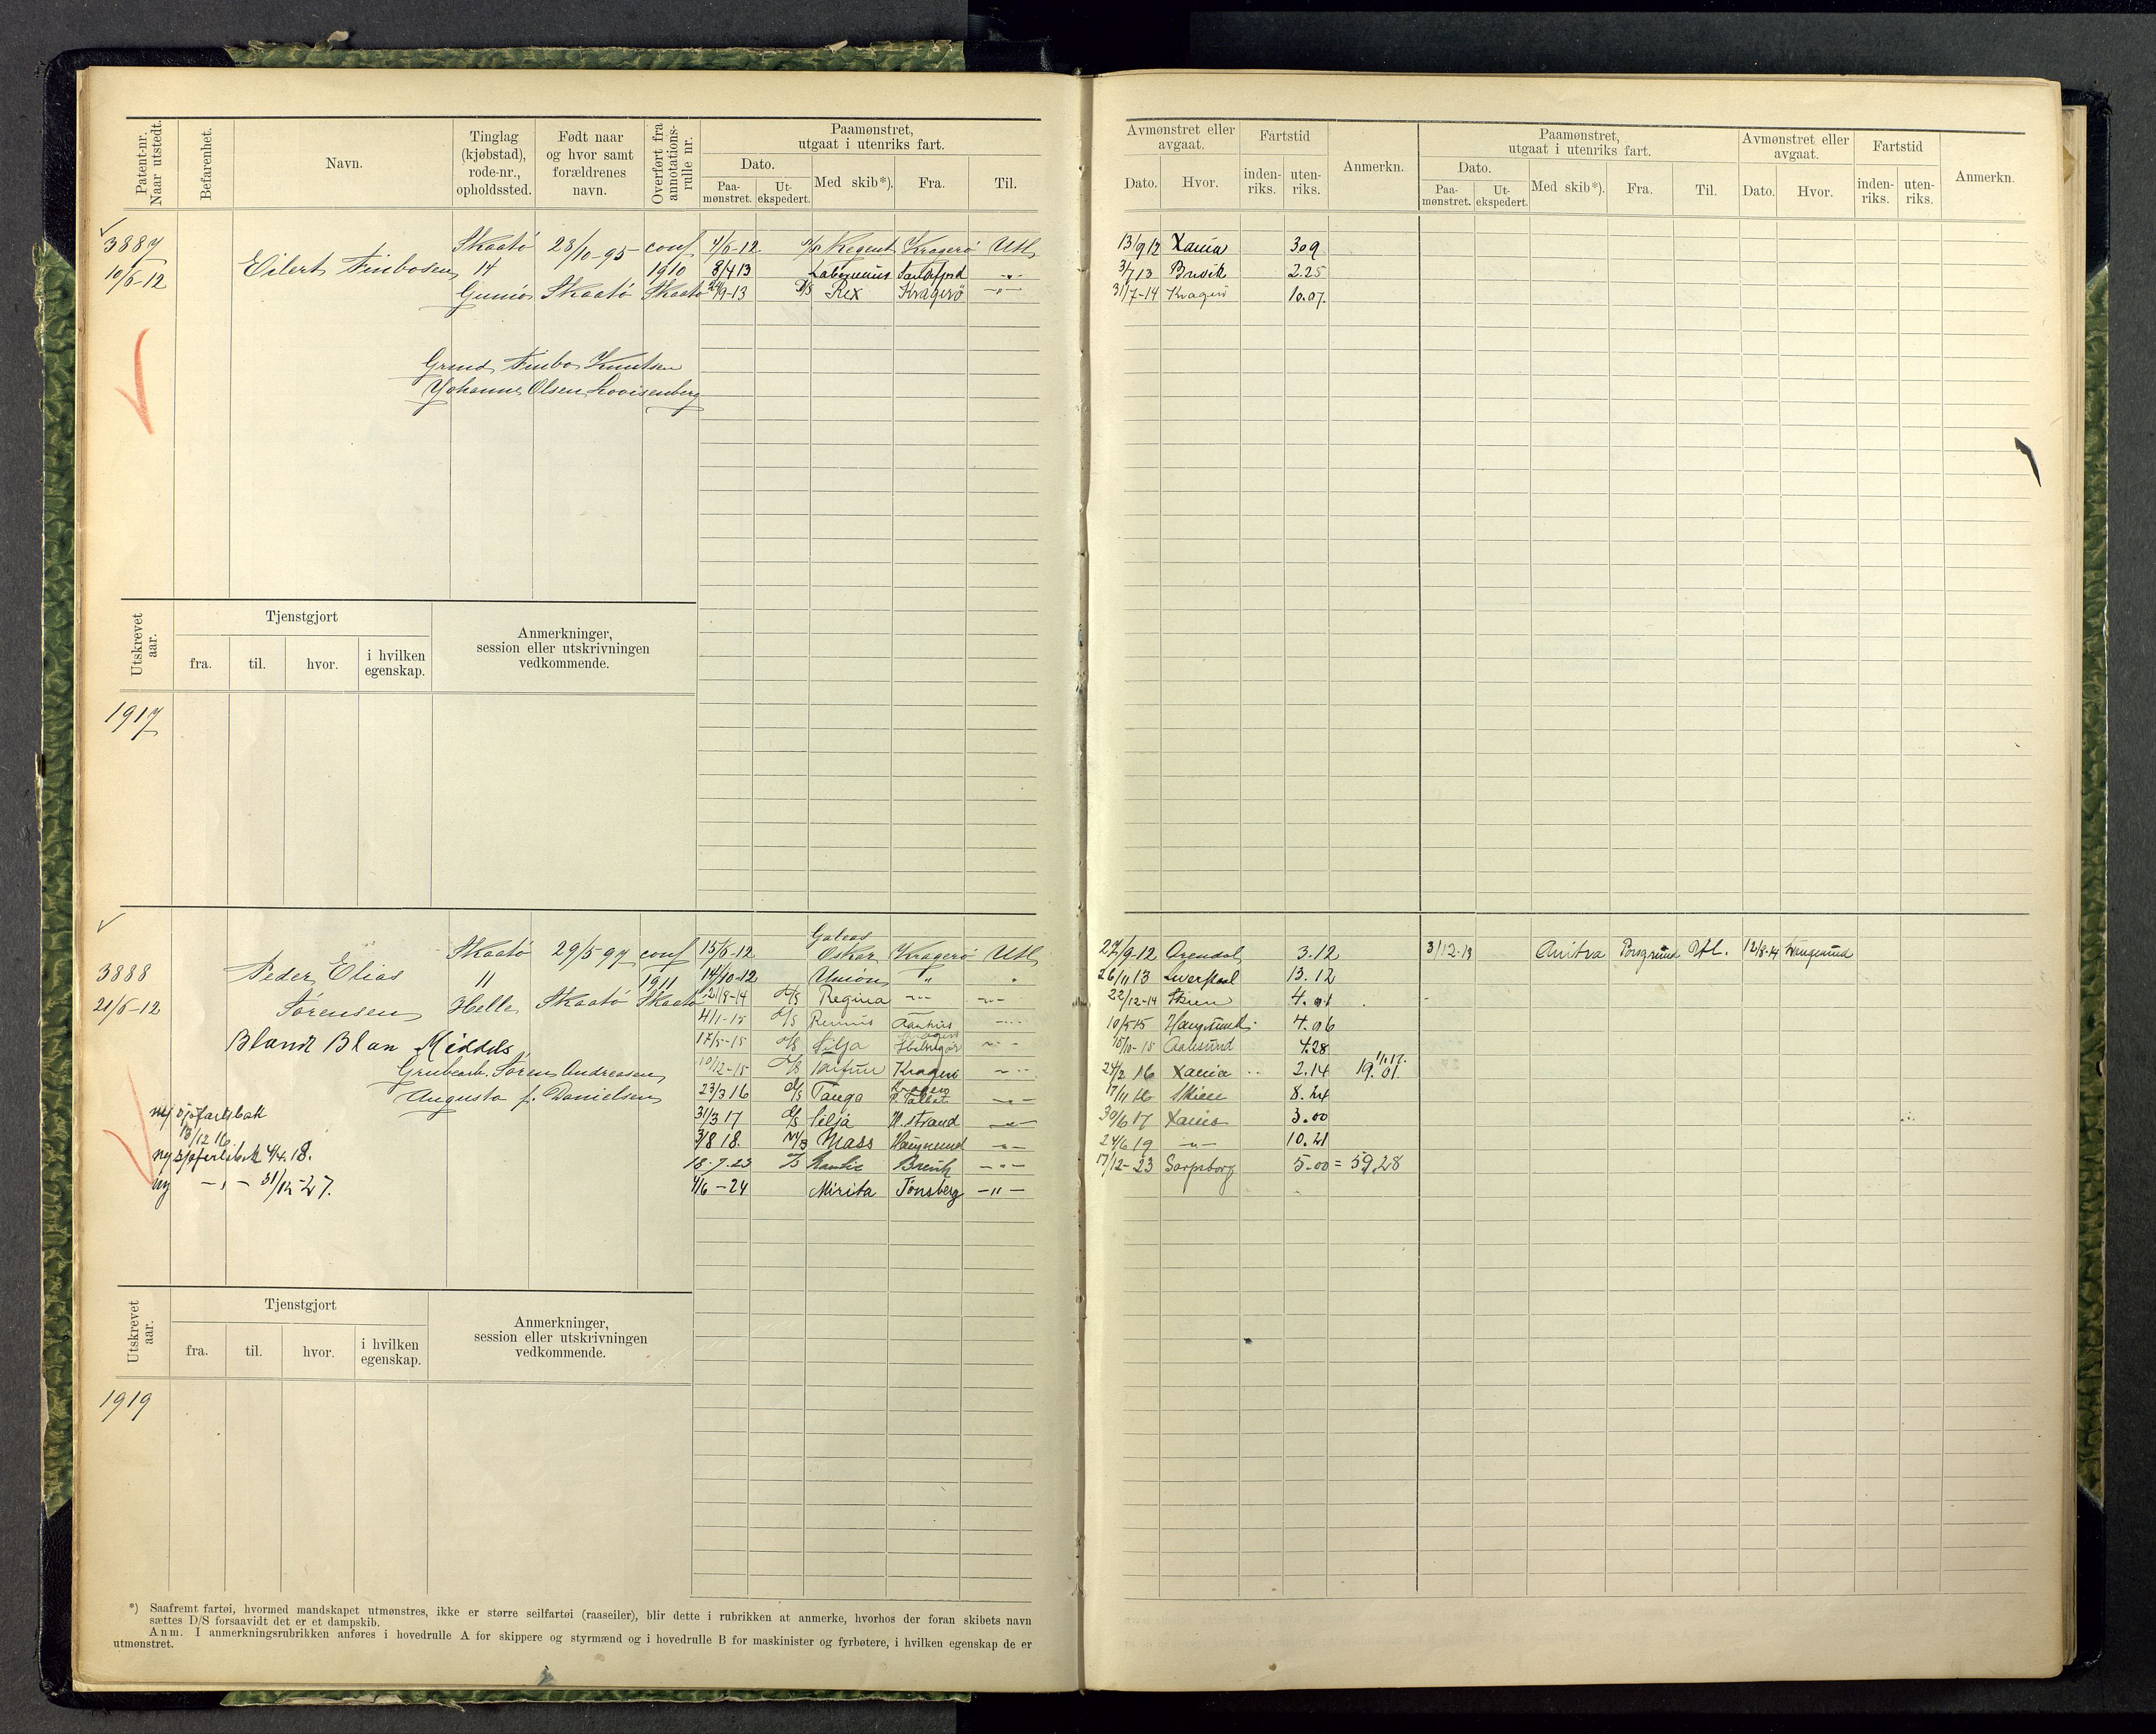 Patent-nr. Naar utstedt.
Befarenhet.
Navn.
Tinglag (kjøbstad), rode-nr., opholdssted.
Født naar og hvor samt forældrenes navn.
Overført fra annotations-rulle nr.
Paamønstret, utgaat i utenriks fart.
Dato.
Paa-mønstret.
Ut-ekspedert.
Med skib*).
Fra.
Til.
Avmønstret eller avgaat.
Dato.
Hvor.
Fartstid
inden-riks.
uten-riks.
Anmerkn.
Paamønstret, utgaat i utenriks fart.
Dato.
Paa-mønstret.
Ut-ekspedert.
Med skib*).
Fra.
Til.
Avmønstret eller avgaat.
Dato.
Hvor.
Fartstid
inden-riks.
uten-riks.
Anmerkn.
3887 Skaatø 28/10-95 conf 7/6-12 Regent Kragerø Utl 13/9 12 Xania 3.09
10/6-12 Eilert Finbosen 14 1910 8/4 13 -"- 3/7 13 Brevik 2.25
Gumø Skaatø Skaatø 24/9-13 D/S Rex Kragerø -"- 31/7-14 Kragerø 10.07.
Finbo Knutsen
Johanne Olsen Lovisenberg
Utskrevet aar.
Tjenstgjort
fra.
til.
hvor.
i hvilken egenskap.
Anmerkninger, session eller utskrivningen vedkommende.
1917
Galeas
Skaatø 29/5-97 conf 15/6-12 Oskar Kragerø Utl 27/9-12 Arendal 3.12 3/12-13 Anitra Porsgrund Utl. 12/8-14 Haugesund
3888 Peder Elias 11 1911 14/10-12 Union " " 26/11 13 Liverpool 13.12
21/6-12 Sørensen Helle Skaatø Skaatø 21/9-14 D/S Regina -"- -"- 22/12-14 Skien 4.01
4/1-15 D/S -"- 10/5-15 Haugesund 4.06
Bland Blan Middels 17/5-15 D/S Silja -"- 15/10-15 Aalesund 4.28
Grubearb. Søren Andreasen 10/12-15 D/S Kragerø -"- 24/2 16 Xania 2.14 19.01.
Augusta f. Danielsen 23/3 16 D/S Tanga -"- 17/11 16 Skien 8.24
ny sjøfartsbok 31/3 17 D/S Silja H. strand -"- 30/6 17 Xania 3.00
13/12 16
3/8 18. M/S Mass Haugesund -"- 24/6 19 -"- 10.21
ny sjøfartsbok 4/4.18. 18.7.23 Brevik -"- 17/12-23 Sarpsborg 5.00 = 59.28
ny -"- 31/12-27. 4/6-24 Mirita Tønsberg -"-
Utskrevet aar.
Tjenstgjort
fra.
til.
hvor.
i hvilken egenskap.
Anmerkninger, session eller utskrivningen vedkommende.
1919
*) Saafremt fartøi, hvormed mandskapet utmønstres, ikke er større seilfartøi (raaseiler), blir dette i rubrikken at anmerke, hvorhos der foran skibets navn
sættes D/S forsaavidt det er et dampskib.
Anm. I anmerkningsrubrikken anføres i hovedrulle A for skippere og styrmænd og i hovedrulle B for maskinister og fyrbøtere, i hvilken egenskap de er
utmønstret.